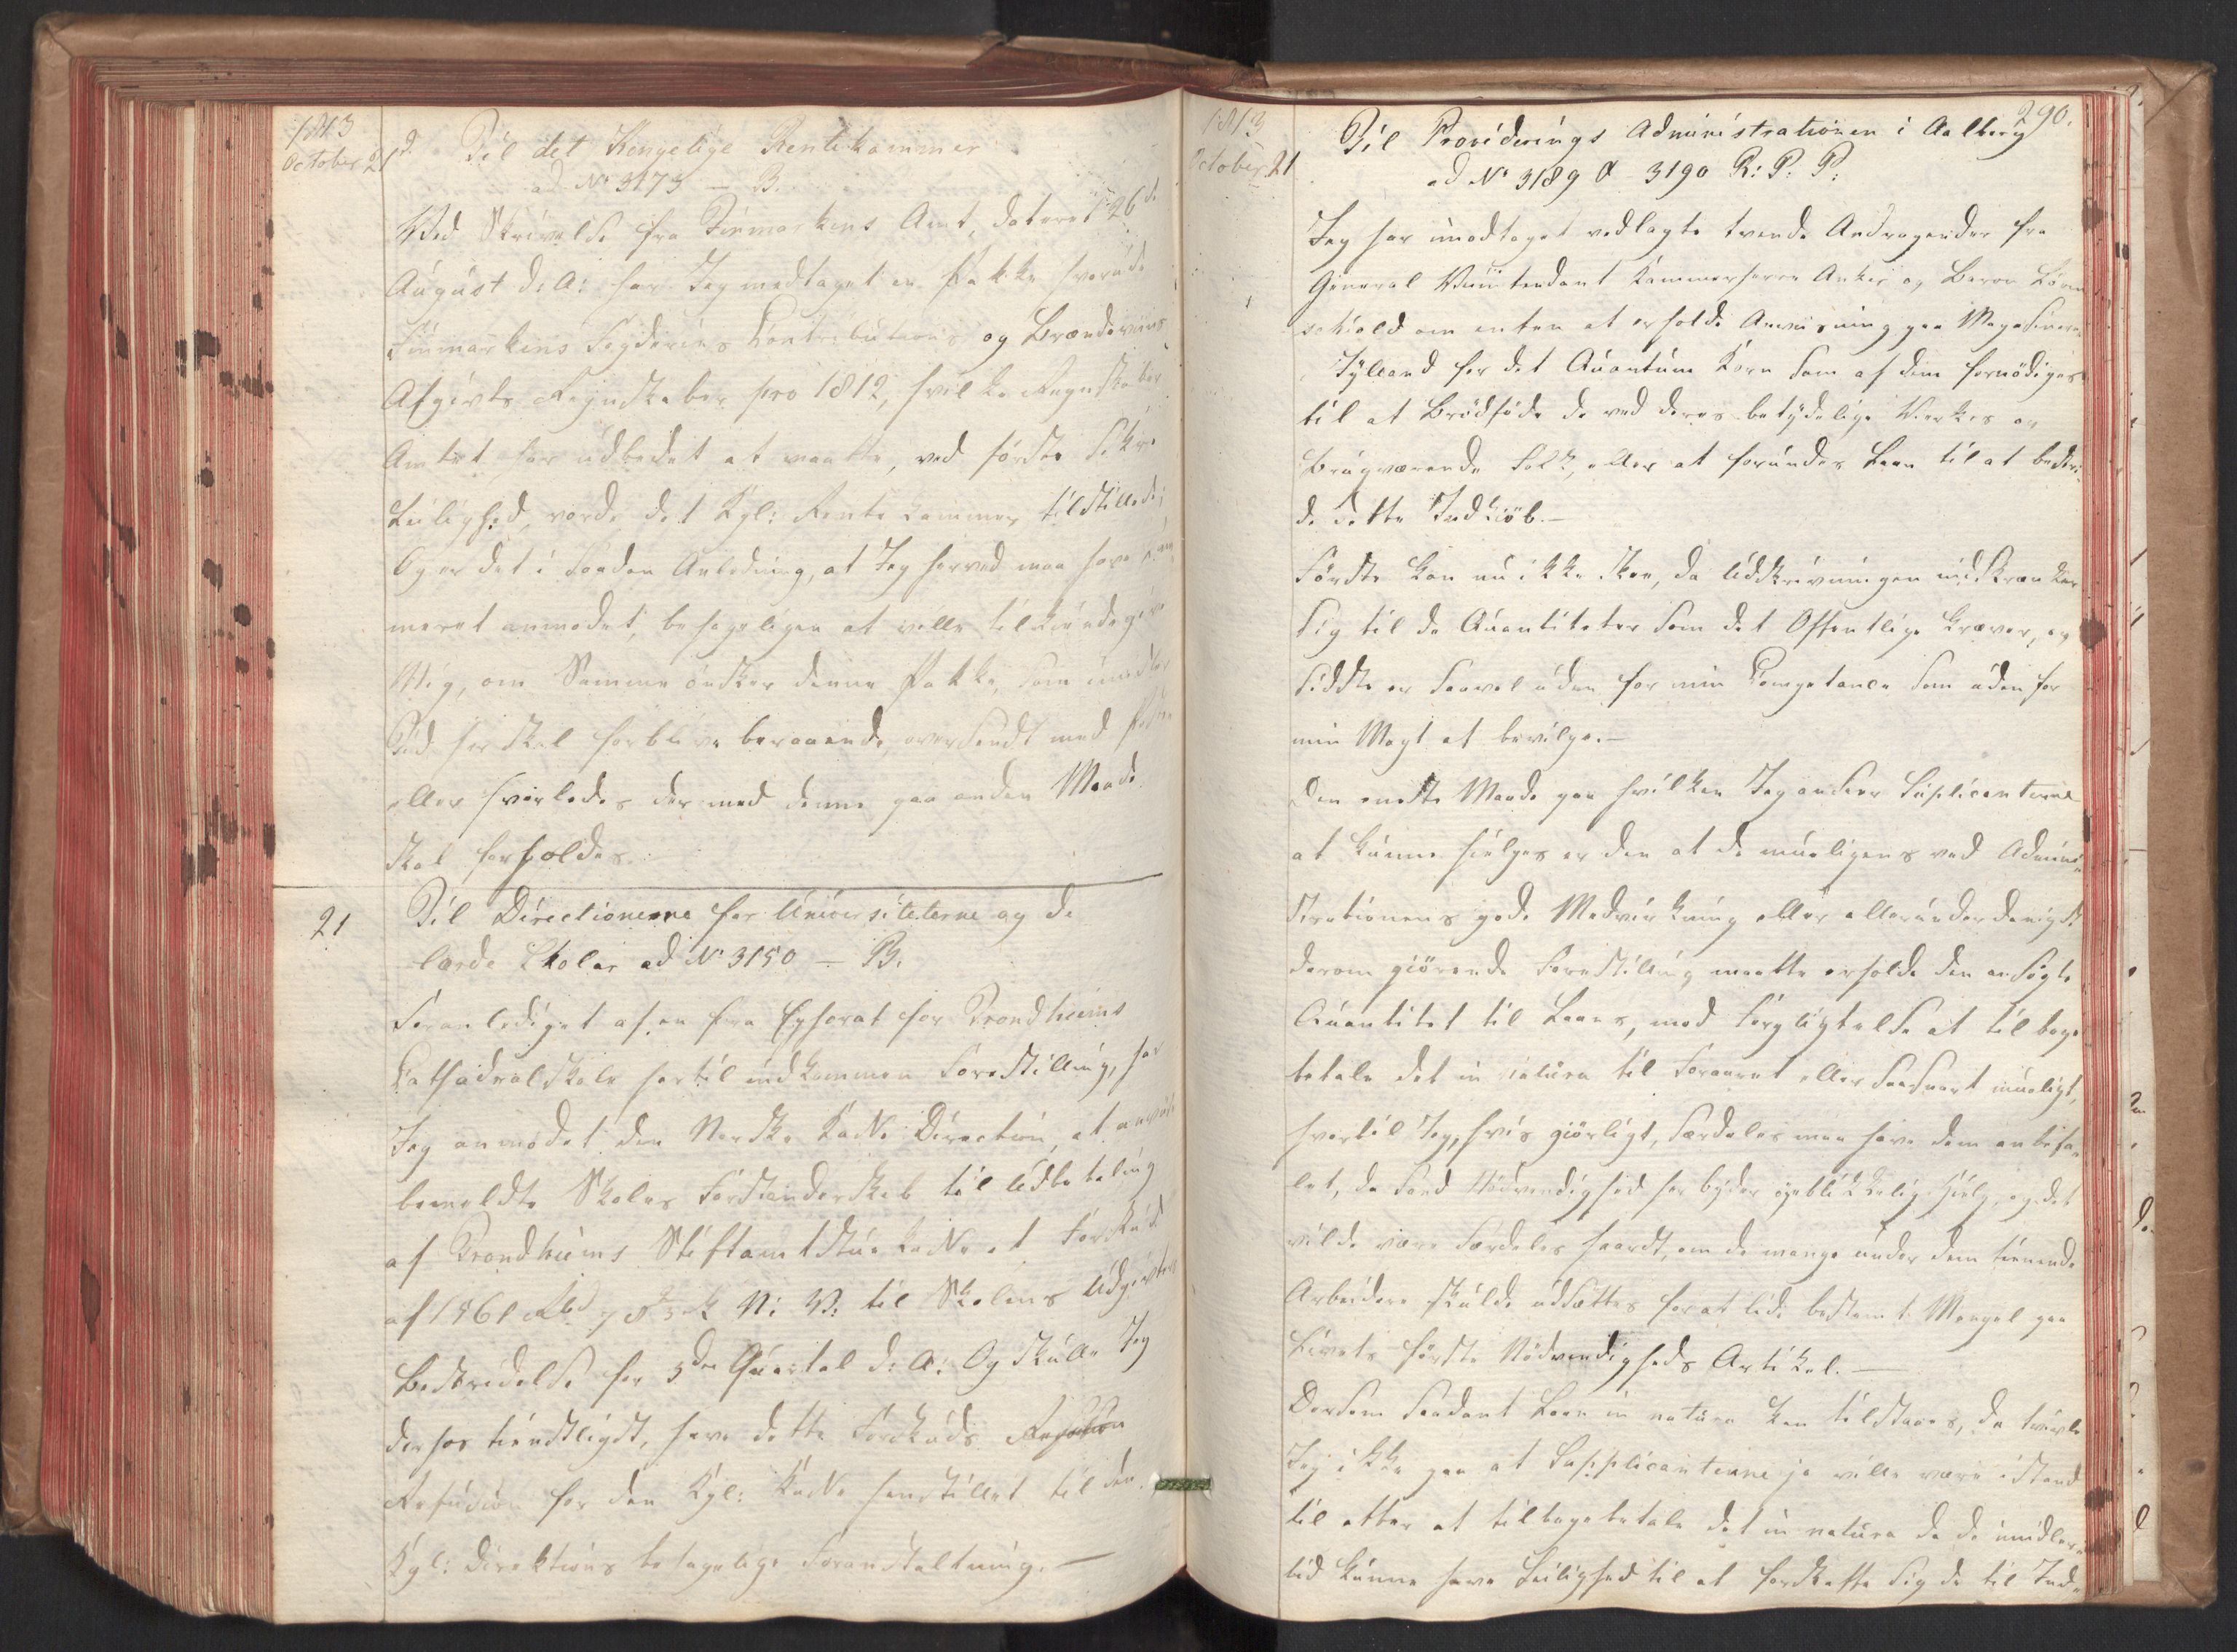 1813
October 21d.
Til det Kongelige Rentekammer
ad No 3173 — B.
Ved Skrivelse fra Finmarkens Amt, dateret 26de
August d: A: har Jeg modtaget en Pakke hvorudi
Finmarkens Fogderies Contributions og Brændeviins
Afgivts Regnskaber pro 1812, hvilke Regnskaber
Amtet har udbedet at maatte, ved første sikre
Leilighed, vorde det Kgl: Rente Kammer tilstillede;
Og er det i saadan Anledning, at Jeg herved maa have
meret anmodet, behageligen at ville tilkiendegive
Mig, om Samme ønsker denne Pakke, som imidler
Tid her skal forblive beroende, oversendt med Posten
eller hvorledes der med denne paa anden Maade
skal forholdes.
21
Til Directionerne for Universiteterne og de
lærde Skoler ad No 3150 — B.
Foranlediget af en fra Ephorat for Trondhiems
Cathedralskole hertil indkommen Forestilling, har
Jeg anmodet den Norske Kasse Direction, at anvise
bemeldte Skoles Forstanderskab til Udbetaling
af Trondhiems Stiftamtstue Kasse et Forskud
af 1861 Rbd N: V: til Skolens Udgivters
Bestridelse for 3die Quartal d: A: Og skulle Jeg
derhos tienstligst, have dette Forskuds
Refusion for den Kgl: Kasse henstillet til den
Kgl: Direktions behagelige Foranstaltning. —
290.
1813
October 21
Til Provideerings Administrationen i Aalborg
ad No 3189 & 3190 R: P: P:
Jeg har modtaget vedlagte tvende Andragender fra
General Intendant Kammerherre Anker og Baron Løven
schiold om enten at erholde Anviisning paa Magasinerne
Jylland for det Quantum Korn som af dem fornødiges
til at Brødføde de ved deres betydelige Værker og
Brugværende Folk, eller at forundes Laan til at bestri
de dette Indkiøb. —
Første kan nu ikke skee, da Udskrivningen indskrænker
sig til de Quantiteter som det Offentlige kræver, og
sidste er saavel uden for min Competance som uden for
min Magt at bevilge. —
Den eneste Maade paa hvilken Jeg anseer Suplicanterne
at kunne hielpes er den at de mueligens ved Admini
strationens gode Medvirkning eller allerunderdanigst
derom giørende Forestilling maatte erholde den ansøgte
Quantitet til Laans, mod Forpligtelse at tilbage
betale det in natura til Foraaret eller saasnart mueligt,
hvortil Jeg, hvis giørligt, særdeles maa have dem anbefa
let, da sand Nødvendighed her byder øieblikkelig Hielp, og det
vilde være særdeles haardt, om de mange under dem tienende
Arbeidere skulde udsættes for at lide bestemt Mangel paa
Livets første Nødvendigheds Artikel. —
Dersom saadant Laan in natura kan tilstaaes, da tvivler
Jeg ikke paa at Supplicanterne jo ville være istand
til atter at tilbagebetale det in natura da de imidler
tid kunne have Leilighed til at forskaffe sig de til Ind